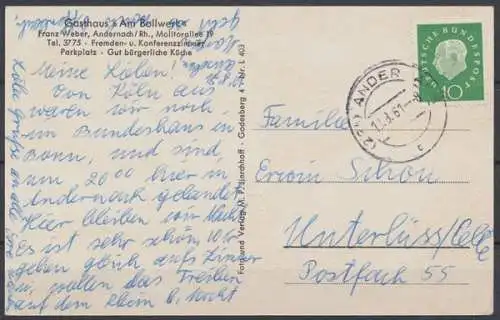 Gasthaus „Am Bollwerk"
Franz Weber, Andernach/Rh., Molitorallee 19
Tel. 3775 - Fremden- u. Konferenzzimmer
Parkplatz - Gut bürgerliche Küche
Meine Lieben!
Von Köln aus
waren wir noch
im Bundeshaus in
Bonn, und sind
um 20 00 hier in
Andernach gelandet.
Hier bleiben wir Nacht
Es ist sehr schön, wir
gehen gleich aufs Zimmer
u. wollen das Treiben
auf dem Rhein b. Nacht
Foto und Verlag M. P. Storchhoff - Godesberg 4 - Nr. L 403
DEUTSCHE BUNDESPOST
10
ANDER
Familie
Erwin Schön
Unterlüss/Celle
Postfach 55